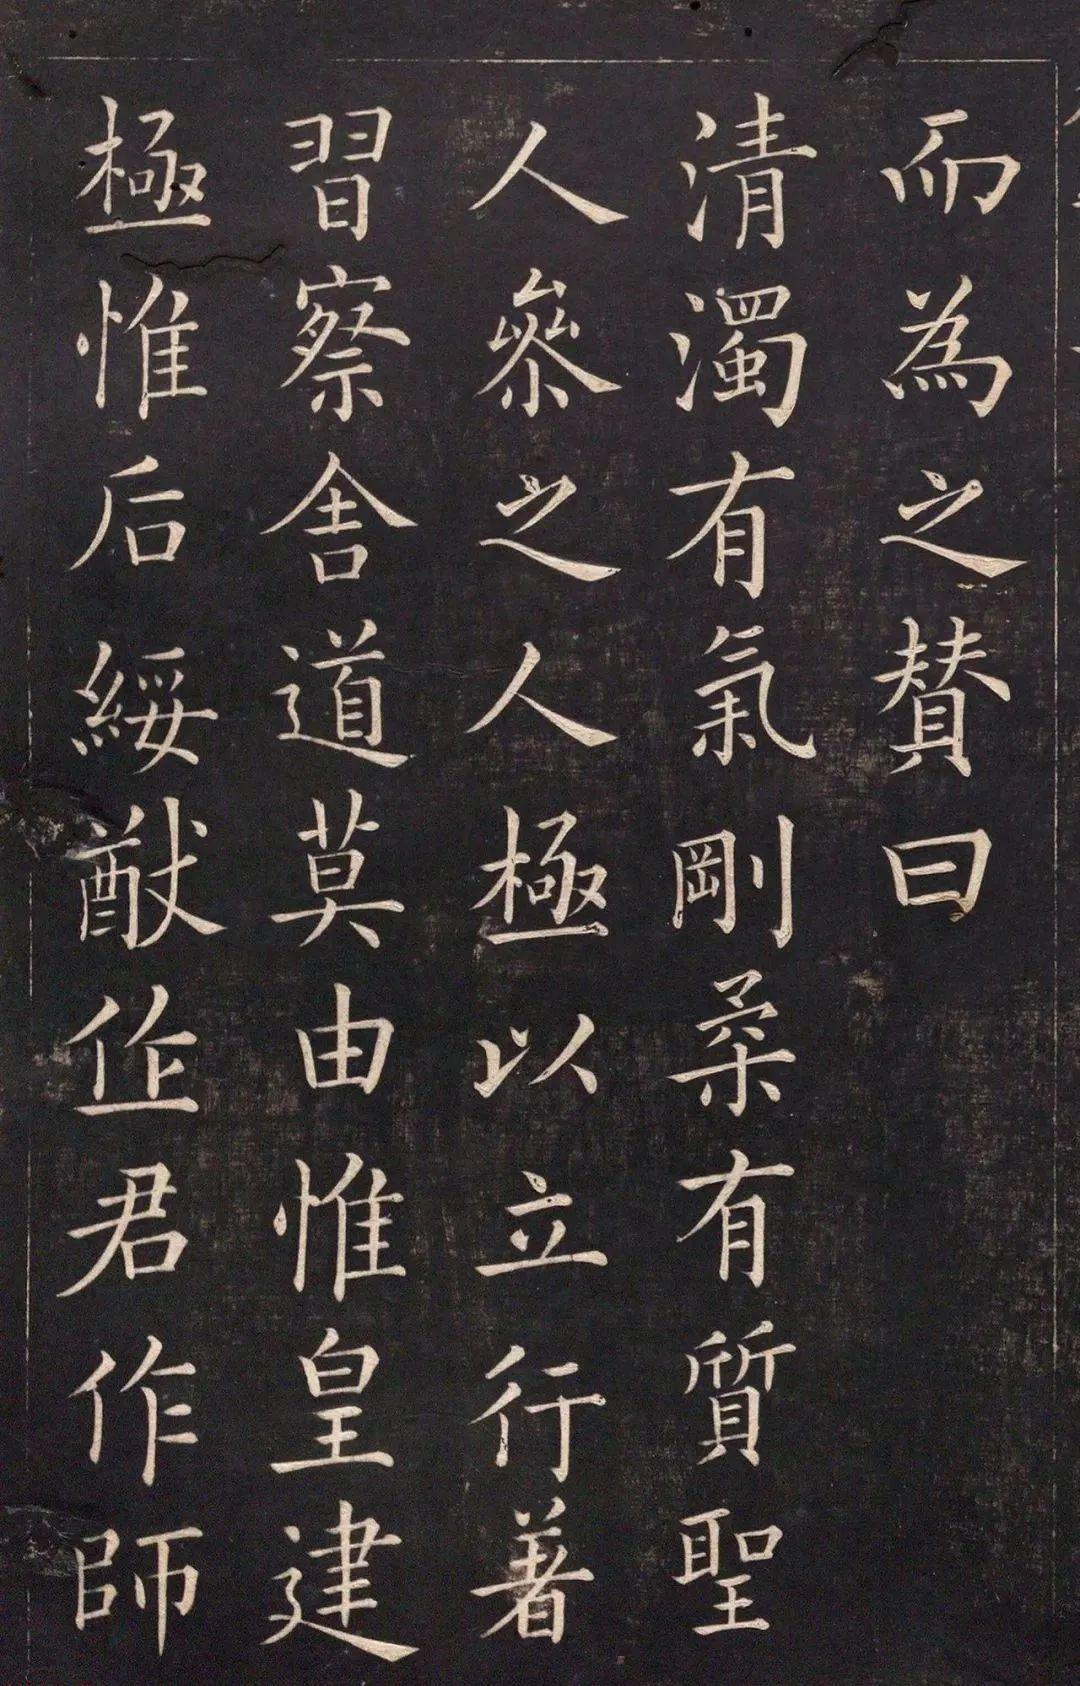 而為之賛曰
清濁有氣剛柔有質聖
人參之人極以立行著
習察舍道莫由惟皇建
極惟后綏猷作君作師